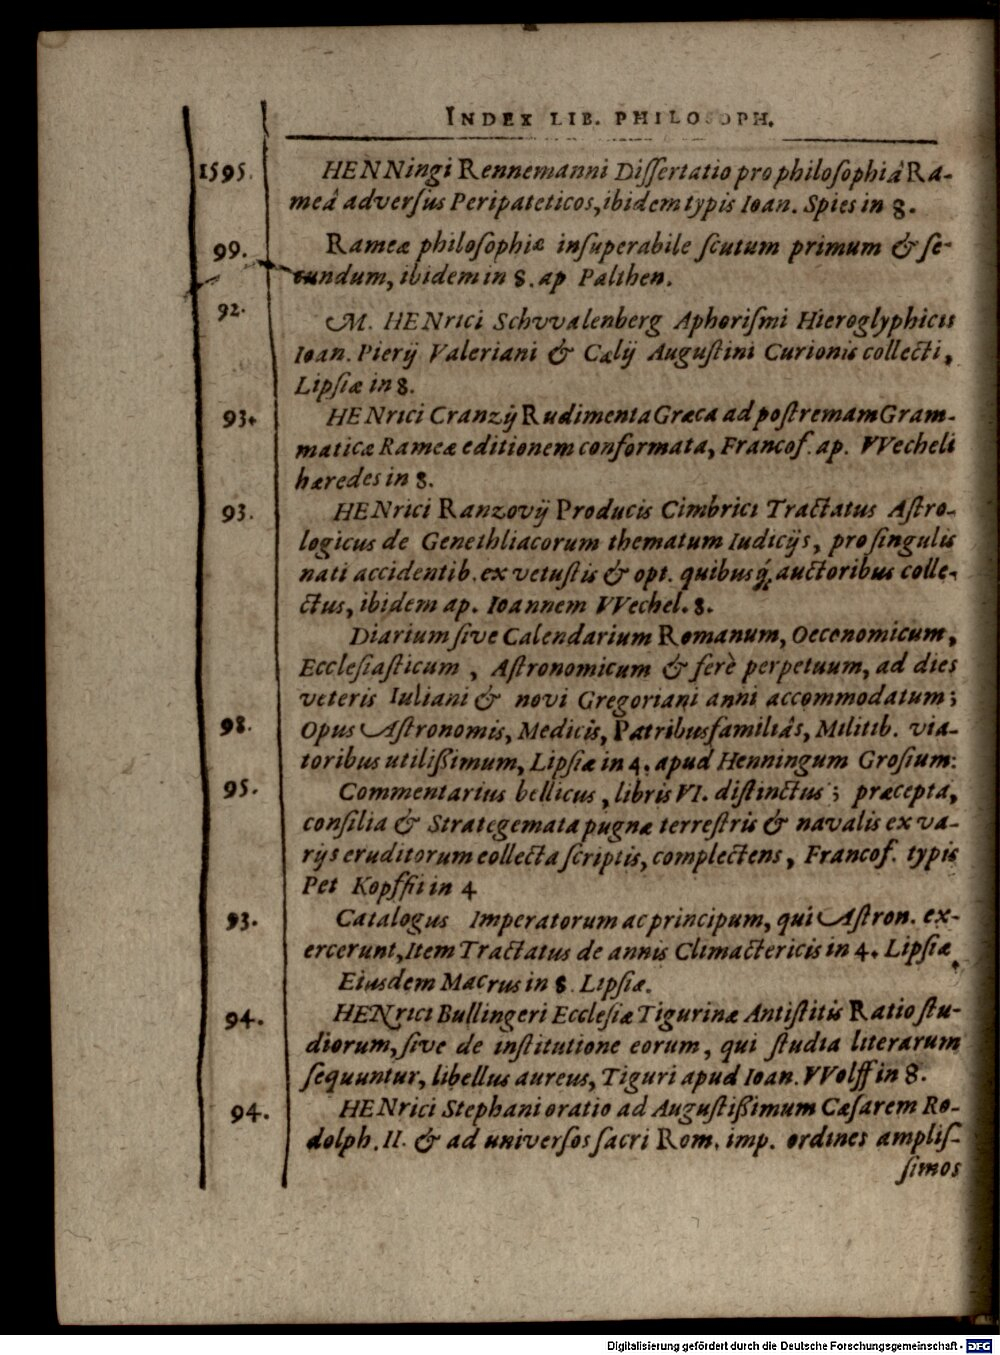 INDEX LIB. PHILOSOPH.
1595. HENNingi Rennemanni Diſſertatio pro philoſophiâ Ra-
meâ adverſus Peripateticos, ibidem typis Ioan. Spies in 8.
99. Rameæ philoſophiæ inſuperabile ſcutum primum & ſe-
cundum, ibidem in 8. ap Palthen.
92. M. HENrici Schvvalenberg Aphoriſmi Hieroglyphicis
Ioan. Pierij Valeriani & Cælij Auguſtini Curionis collecti,
Lipſiæ in 8.
93. HENrici Cranzij Rudimenta Græca ad poſtremam Gram-
maticæ Rameæ editionem conformata, Francof. ap. VVecheli
hæredes in 8.
93. HENrici Ranzovij Producis Cimbrici Tractatus Aſtro-
logicus de Genethliacorum thematum Iudicijs, pro ſingulis
nati accidentib. ex vetuſtis & opt. quibusq́; auctoribus colle-
ctus, ibidem ap. Ioannem VVechel. 8.
Diarium ſive Calendarium Romanum, Oeconomicum,
Eccleſiaſticum, Aſtronomicum & ferè perpetuum, ad dies
veteris Iuliani & novi Gregoriani anni accommodatum;
98. Opus Aſtronomis, Medicis, Patribusfamiliâs, Militib. via-
toribus utilißimum, Lipſiæ in 4. apud Henningum Groſium:
95. Commentarius bellicus, libris VI. diſtinctus; præcepta,
conſilia & Strategemata pugnæ terreſtris & navalis ex va-
rijs eruditorum collecta ſcriptis, complectens, Francof. typis
Pet Kopffii in 4
93. Catalogus Imperatorum ac principum, qui Aſtron. ex-
ercerunt, Item Tractatus de annis Climactericis in 4. Lipſiæ.
Eiusdem Macrus in 8. Lipſiæ.
94. HENrici Bullingeri Eccleſiæ Tigurinæ Antiſtitis Ratio ſtu-
diorum, ſive de inſtitutione eorum, qui ſtudia literarum
ſequuntur, libellus aureus, Tiguri apud Ioan. VVolff in 8.
94. HENrici Stephani oratio ad Auguſtißimum Cæſarem Ro-
dolph. II. & ad univerſos ſacri Rom. imp. ordines ampliſ-
ſimos
Digitalisierung gefördert durch die Deutsche Forschungsgemeinschaft - DFG